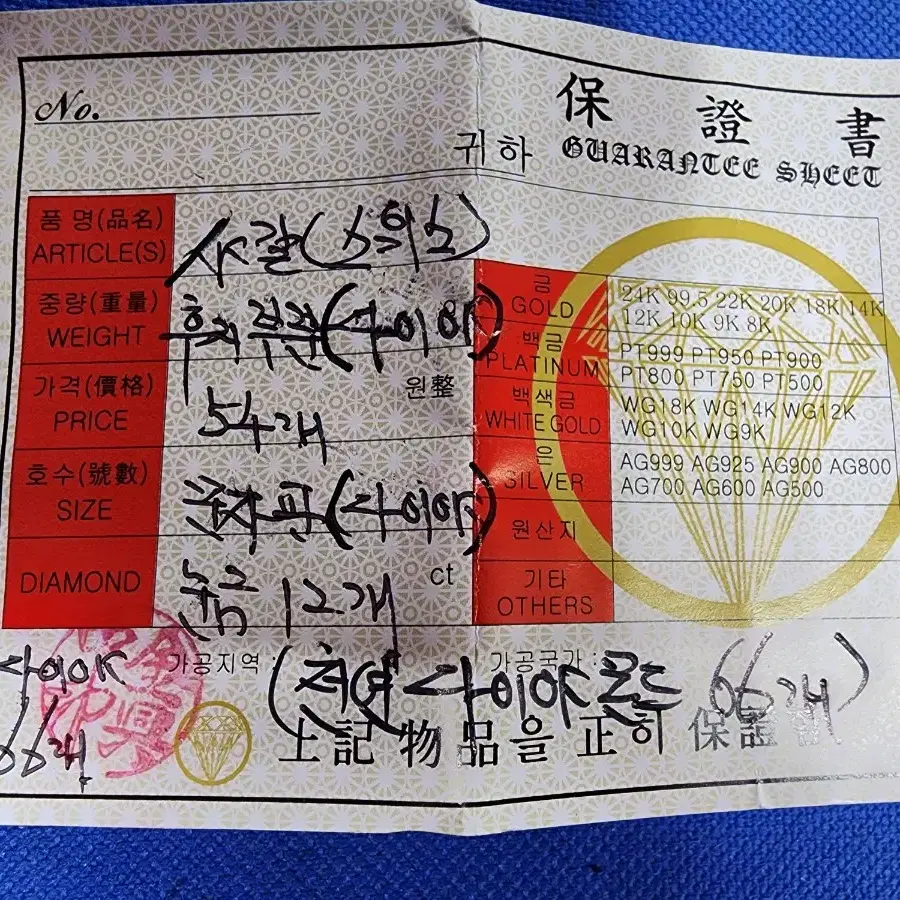 No.
保證書
귀하
GUARANTEE SHEET
품명(品名)
ARTICLE(S)
중량(重量)
WEIGHT
가격(價格)
PRICE
원整
54개
호수(號數)
SIZE
DIAMOND
12개
ct
금
GOLD
24K 99.5 22K 20K 18K 14K
12K 10K 9K 8K
백금
PLATINUM
PT999 PT950 PT900
PT800 PT750 PT500
백색금
WHITE GOLD
WG18K WG14K WG12K
WG10K WG9K
은
SILVER
AG999 AG925 AG900 AG800
AG700 AG600 AG500
원산지
기타
OTHERS
가공지역 :
가공국가 :
(천연 다이아몬드 66개)
66개
上記 物品을 正히 保證